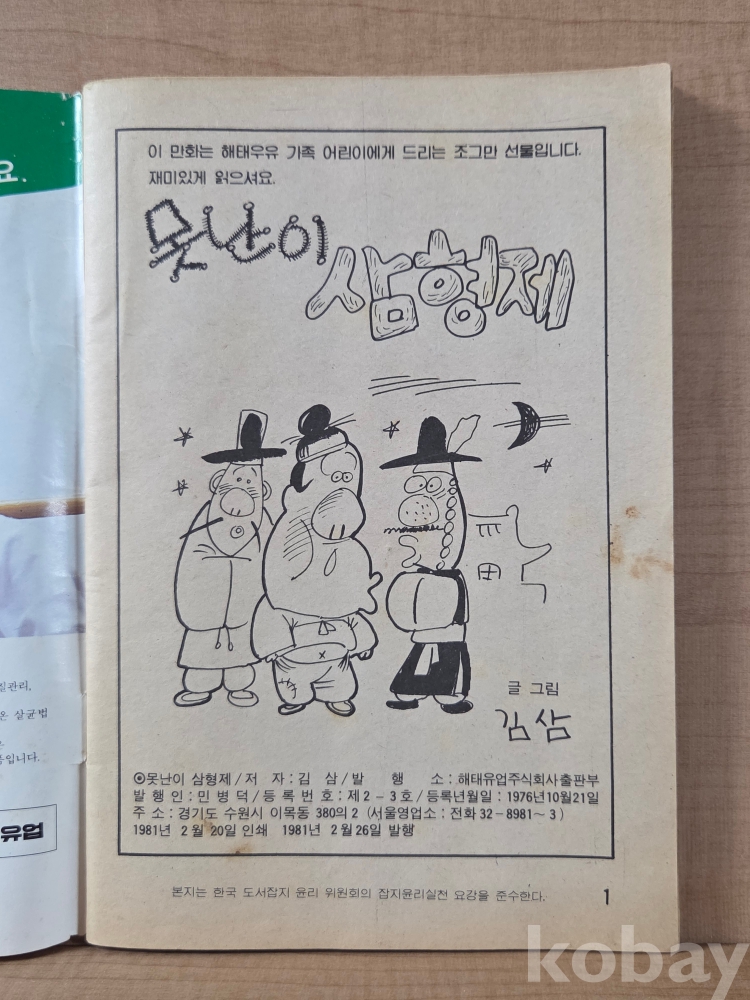 요.
질관리,
온 살균법
은
품입니다.
유업
이 만화는 해태우유 가족 어린이에게 드리는 조그만 선물입니다.
재미있게 읽으셔요.
못난이
삼형제
글 그림
김삼
◉못난이 삼형제/저 자:김 삼/발 행 소:해태유업주식회사출판부
발 행 인:민병덕/등 록 번 호:제2-3호/등록년월일:1976년10월21일
주 소:경기도 수원시 이목동 380의2 (서울영업소:전화32-8981~3)
1981年 2월 20일 인쇄 1981년 2월26일 발행
본지는 한국 도서잡지 윤리 위원회의 잡지윤리실천 요강을 준수한다.
1
kobay